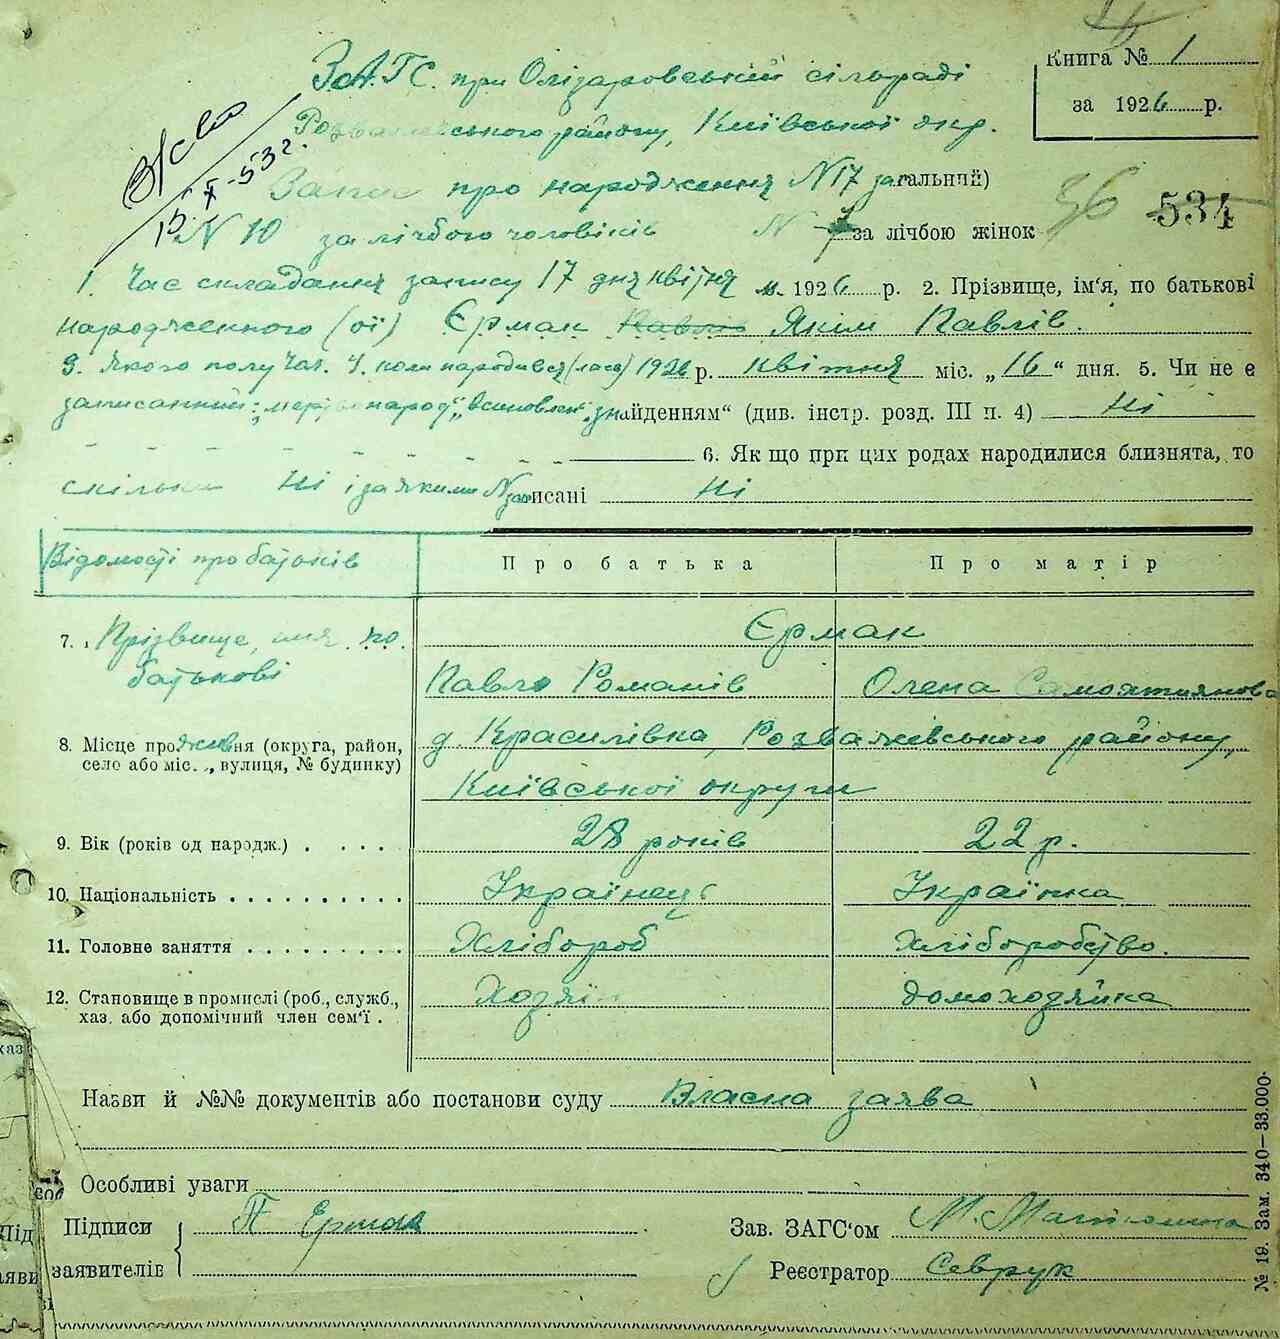 Книга № 1
за 1926 р.
ЗАГС. при Олізаровський сільраді
Розважівського району, Київської окр.
Запис про народження N 17 загальний)
536 534
N 10 за лічбою чоловіків N - за лічбою жінок
1. Час складання запису 17 дня квітня м. 1926 р. 2. Прізвище, ім'я, по батькові
народженного (ої) Єрмак Яким Павлів.
3. Якого полу чол. 4. коли народився (лася) 1926 р. квітня міс. „16“ дня. 5. Чи не є
записанний: „мертвонарод“, „всиновлен“, „знайденням“ (див. інстр. розд. III п. 4) Ні
6. Як що при цих родах народилися близнята, то
скільки Ні і за якими N записані Ні
Відомості про батьків Про батька Про матір
7. Прізвище, имя по Єрмак
батькові Павло Романів Олена
8. Місце проживня (округа, район, д. Красилівка, Розважівського району,
село або міс., вулиця, № будинку) Київської округи
9. Вік (років од народж.) 28 років 22 р.
10. Національність Українець Українка
11. Головне заняття Хлібороб Хліборобство.
12. Становище в промислі (роб., служб., Хозяїн домоходяйка
хаз. або допомічний член сем'ї.
Назви й №№ документів або постанови суду Власна заява
Особливі уваги
Підписи П Ермак Зав. ЗАГС'ом
заявителів Реєстратор Севрук
№ 19. Зам. 340—33.000.